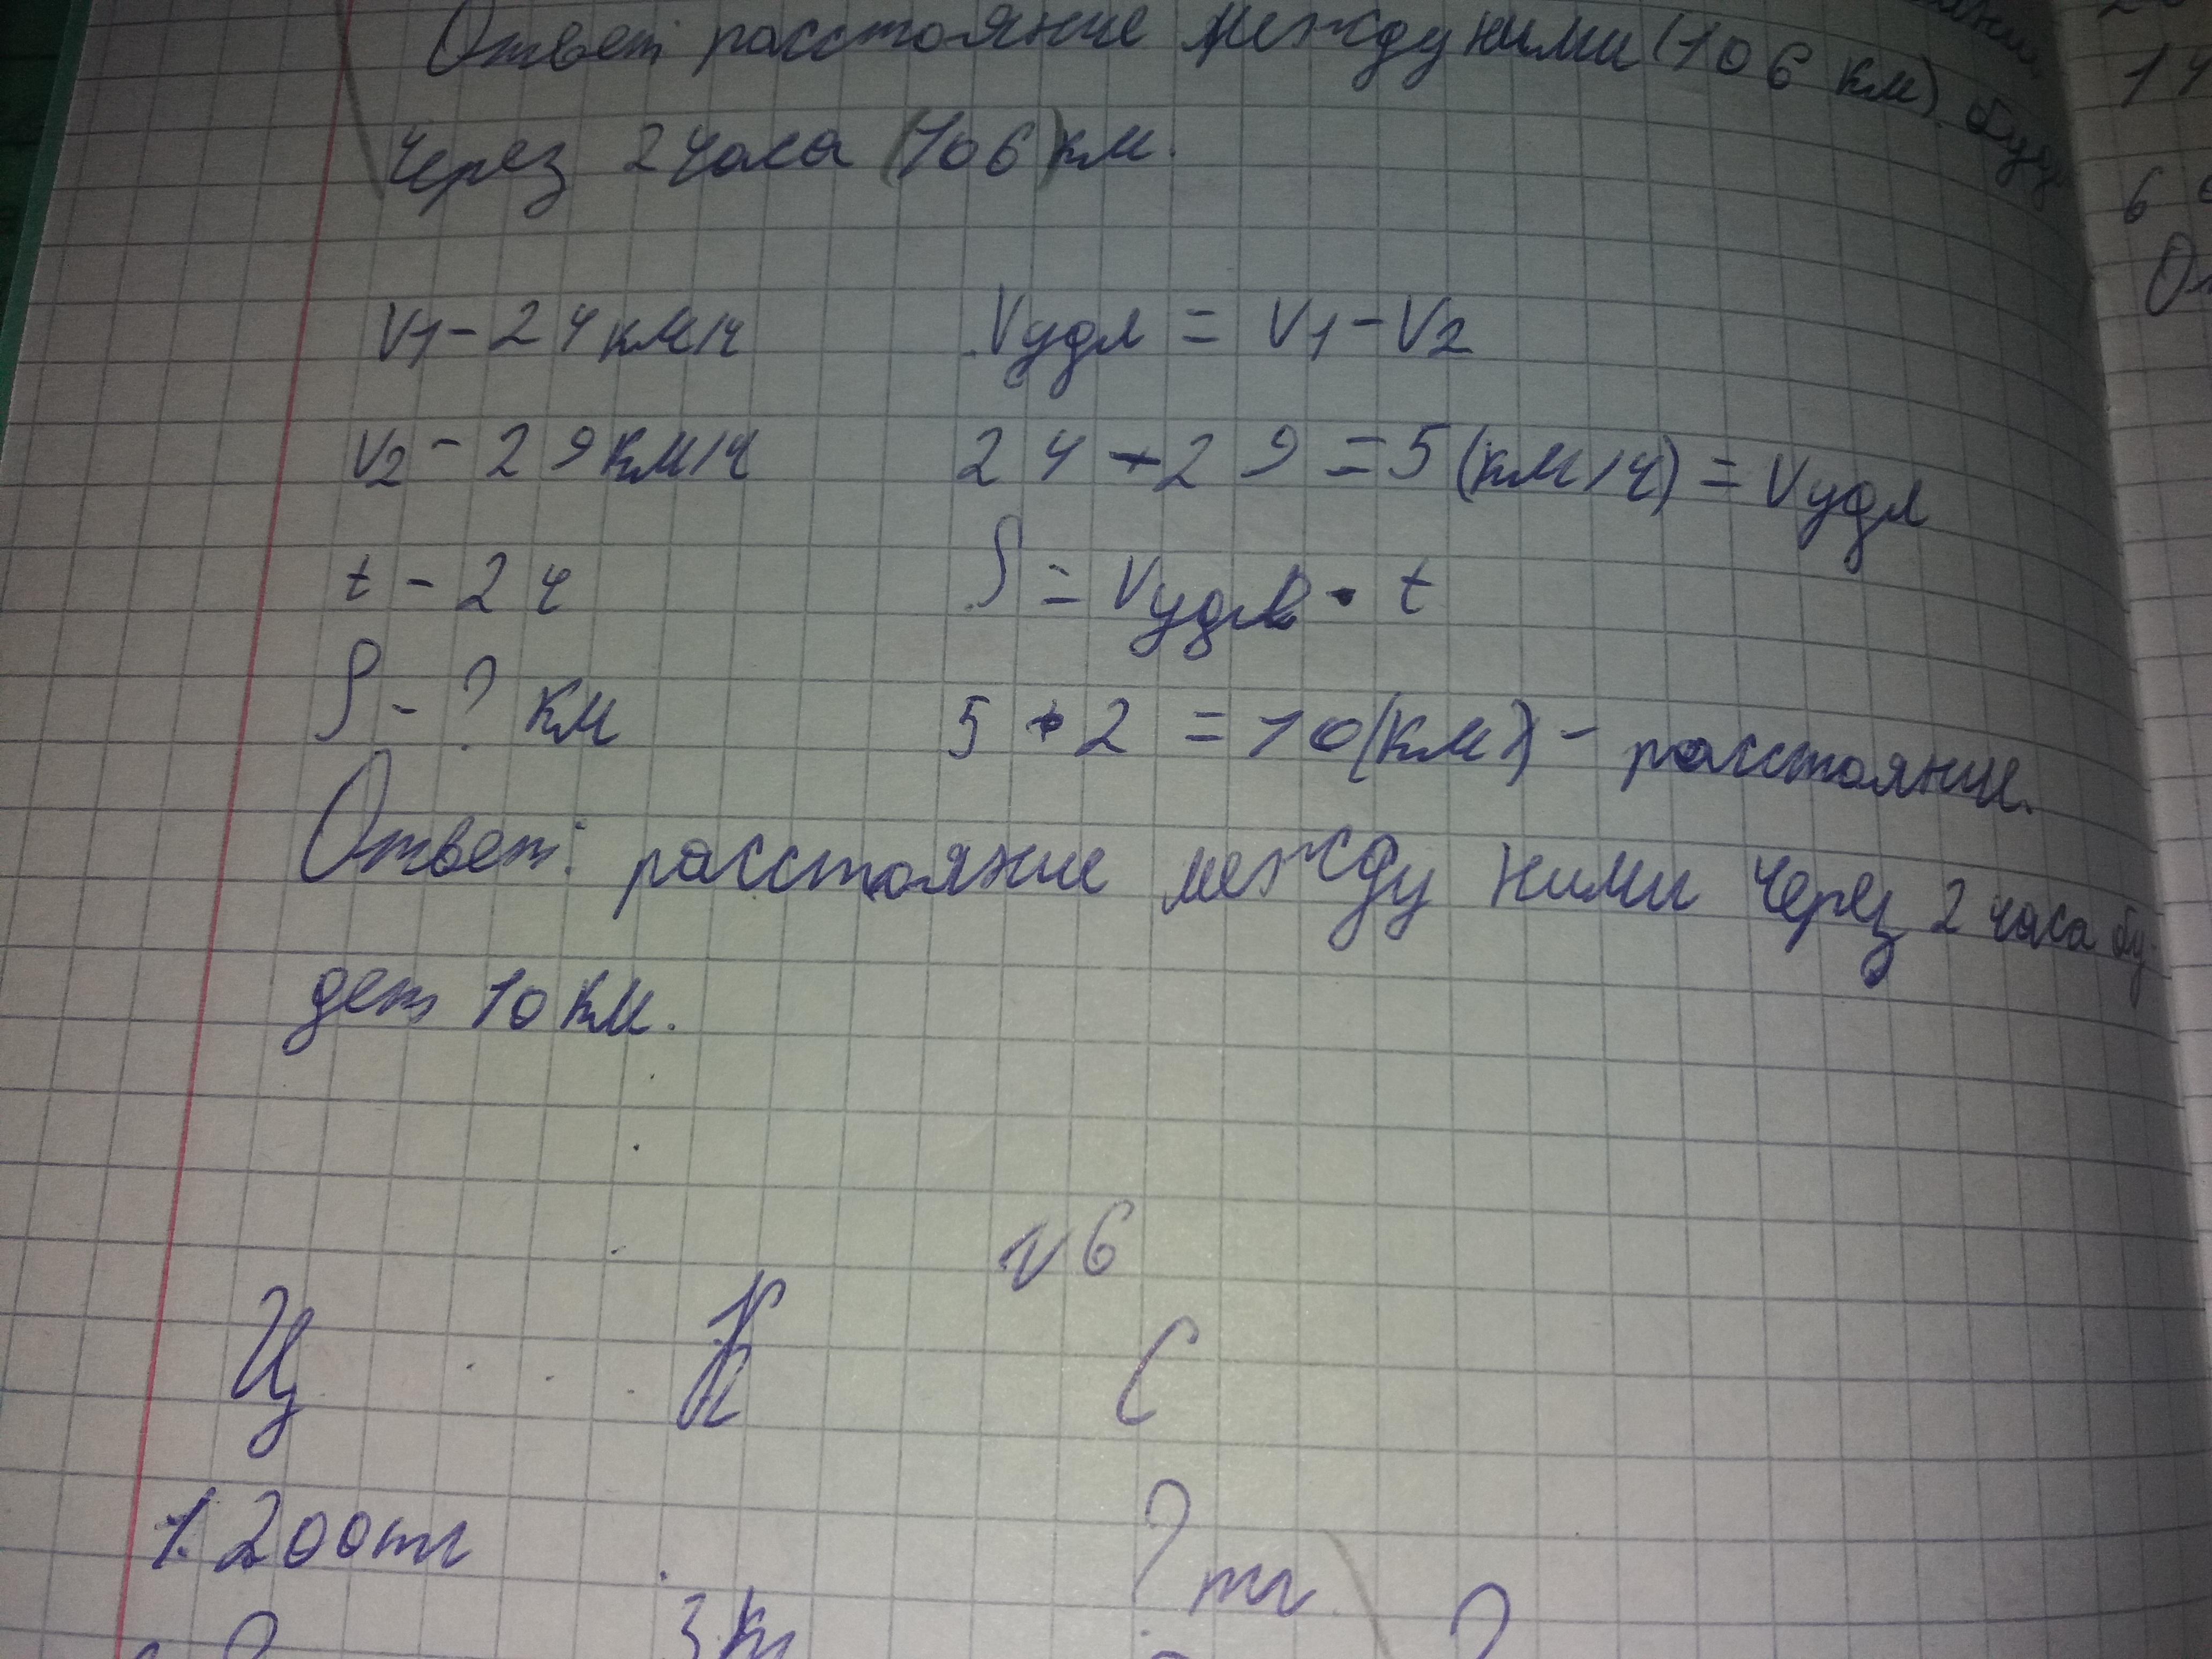 Ответ расстояние между ними (106 км) буд
через 2 часа (106) км.
V1 - 24 км/ч Vудл = V1 - V2
V2 - 29 км/ч 24 - 29 = 5 (км/ч) = Vудл
t - 2 ч S = Vудл · t
S - ? км 5 · 2 = 10 (км) - расстояние.
Ответ: расстояние между ними через 2 часа бу-
дет 10 км.
№ 6
Ц К С
1. 200 тг ? тг
? 3 кг ?
14
6
От